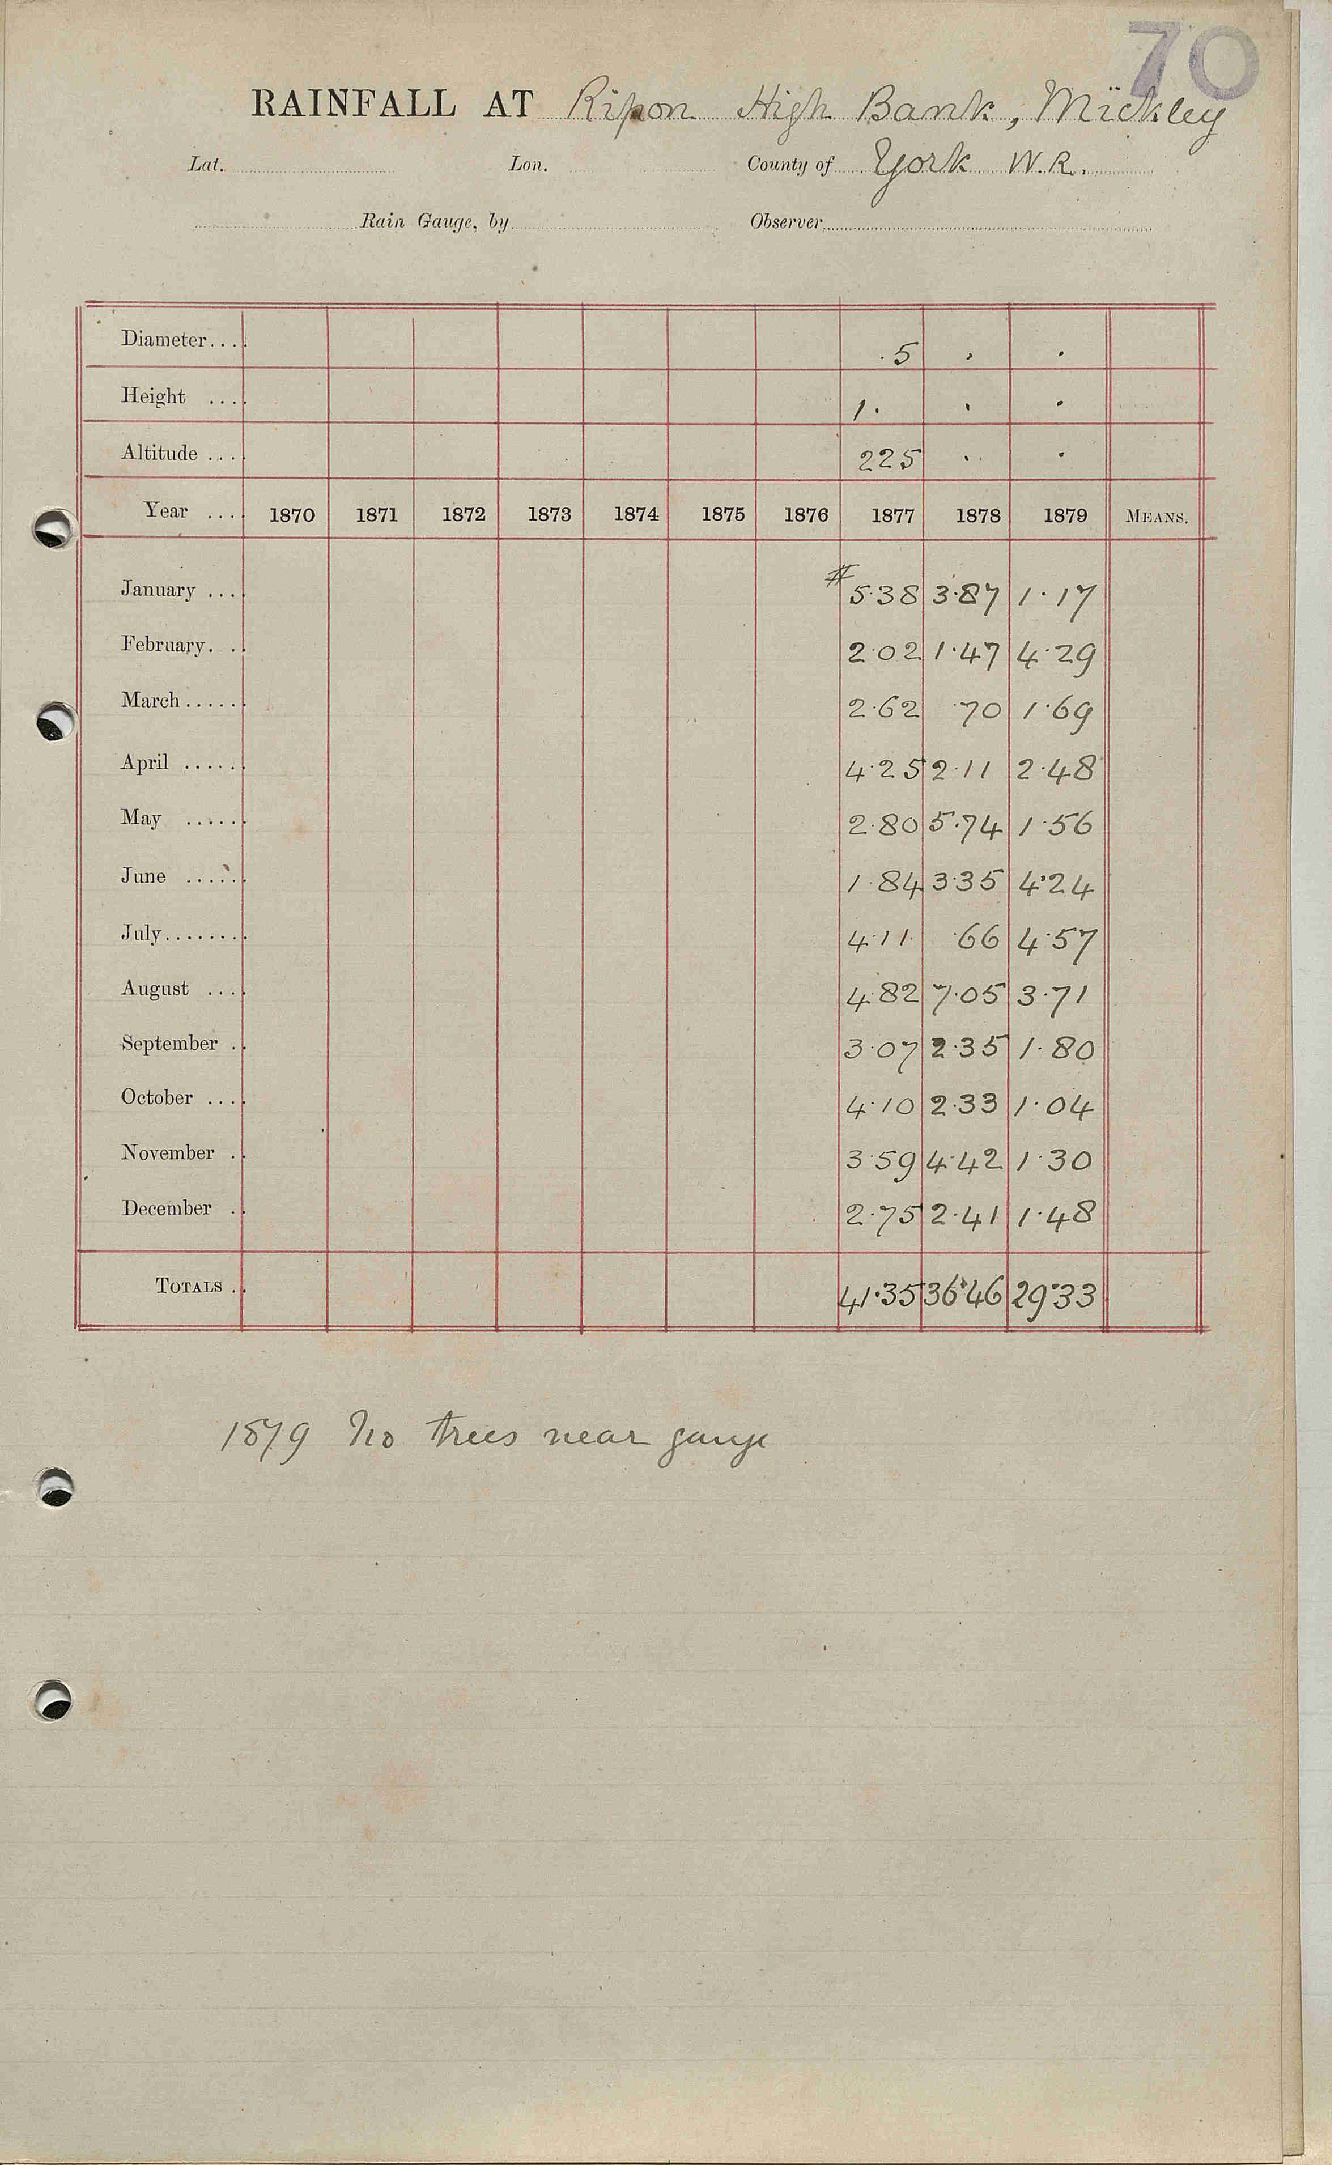 70
RAINFALL AT Ripon High Bank, Mickley
Lat. Lon. County of York W.R.
Rain Gauge, by Observer
Diameter.... 5 . .
Height .... 1. . .
Altitude .... 225 . .
Year .... 1870 1871 1872 1873 1874 1875 1876 1877 1878 1879 MEANS.
January .... # 5.38 3.87 1.17
February... 2.02 1.47 4.29
March...... 2.62 .70 1.69
April ...... 4.25 2.11 2.48
May ...... 2.80 5.74 1.56
June ...... 1.84 3.35 4.24
July........ 4.11 .66 4.57
August .... 4.82 7.05 3.71
September .. 3.07 2.35 1.80
October .... 4.10 2.33 1.04
November .. 3.59 4.42 1.30
December .. 2.75 2.41 1.48
TOTALS .. 41.35 36.46 29.33
1879 No trees near gauge